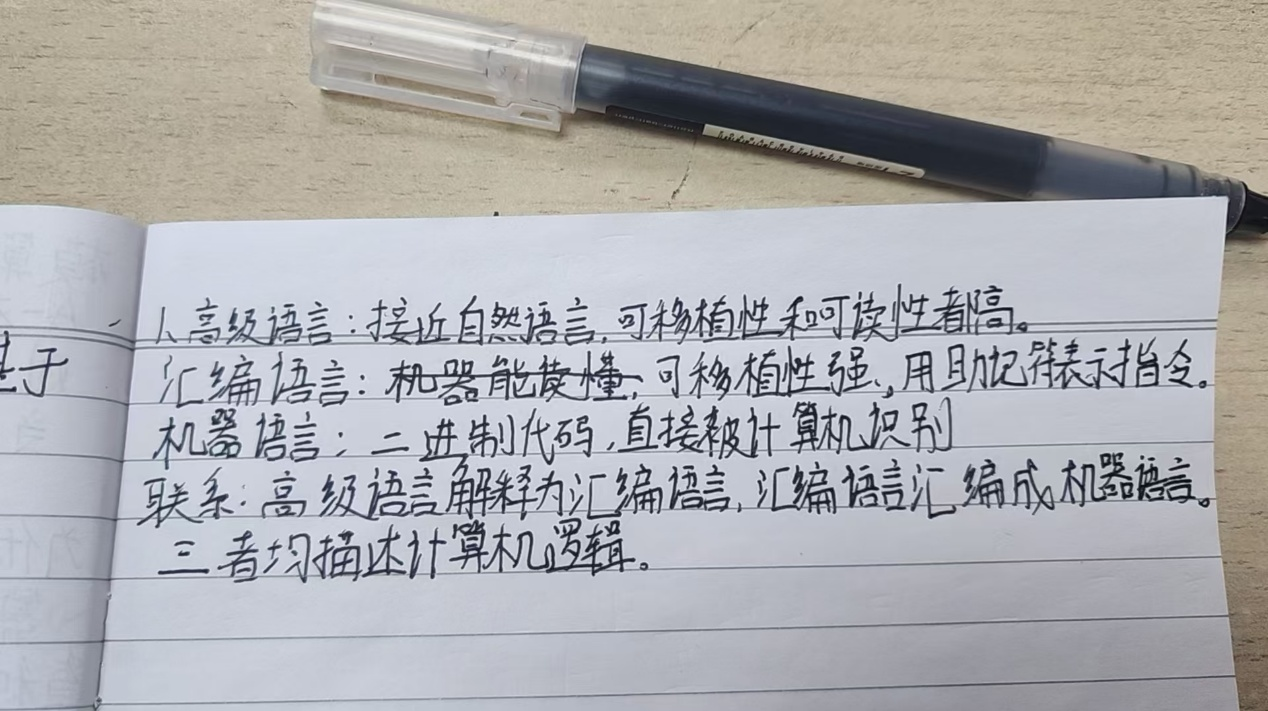 1、高级语言:接近自然语言,可移植性和可读性都高。
基于
汇编语言:机器能读懂,可移植性强,用助记符表示指令。
机器语言:二进制代码,直接被计算机识别
联系:高级语言解释为汇编语言,汇编语言汇编成机器语言。
三者均描述计算机逻辑。